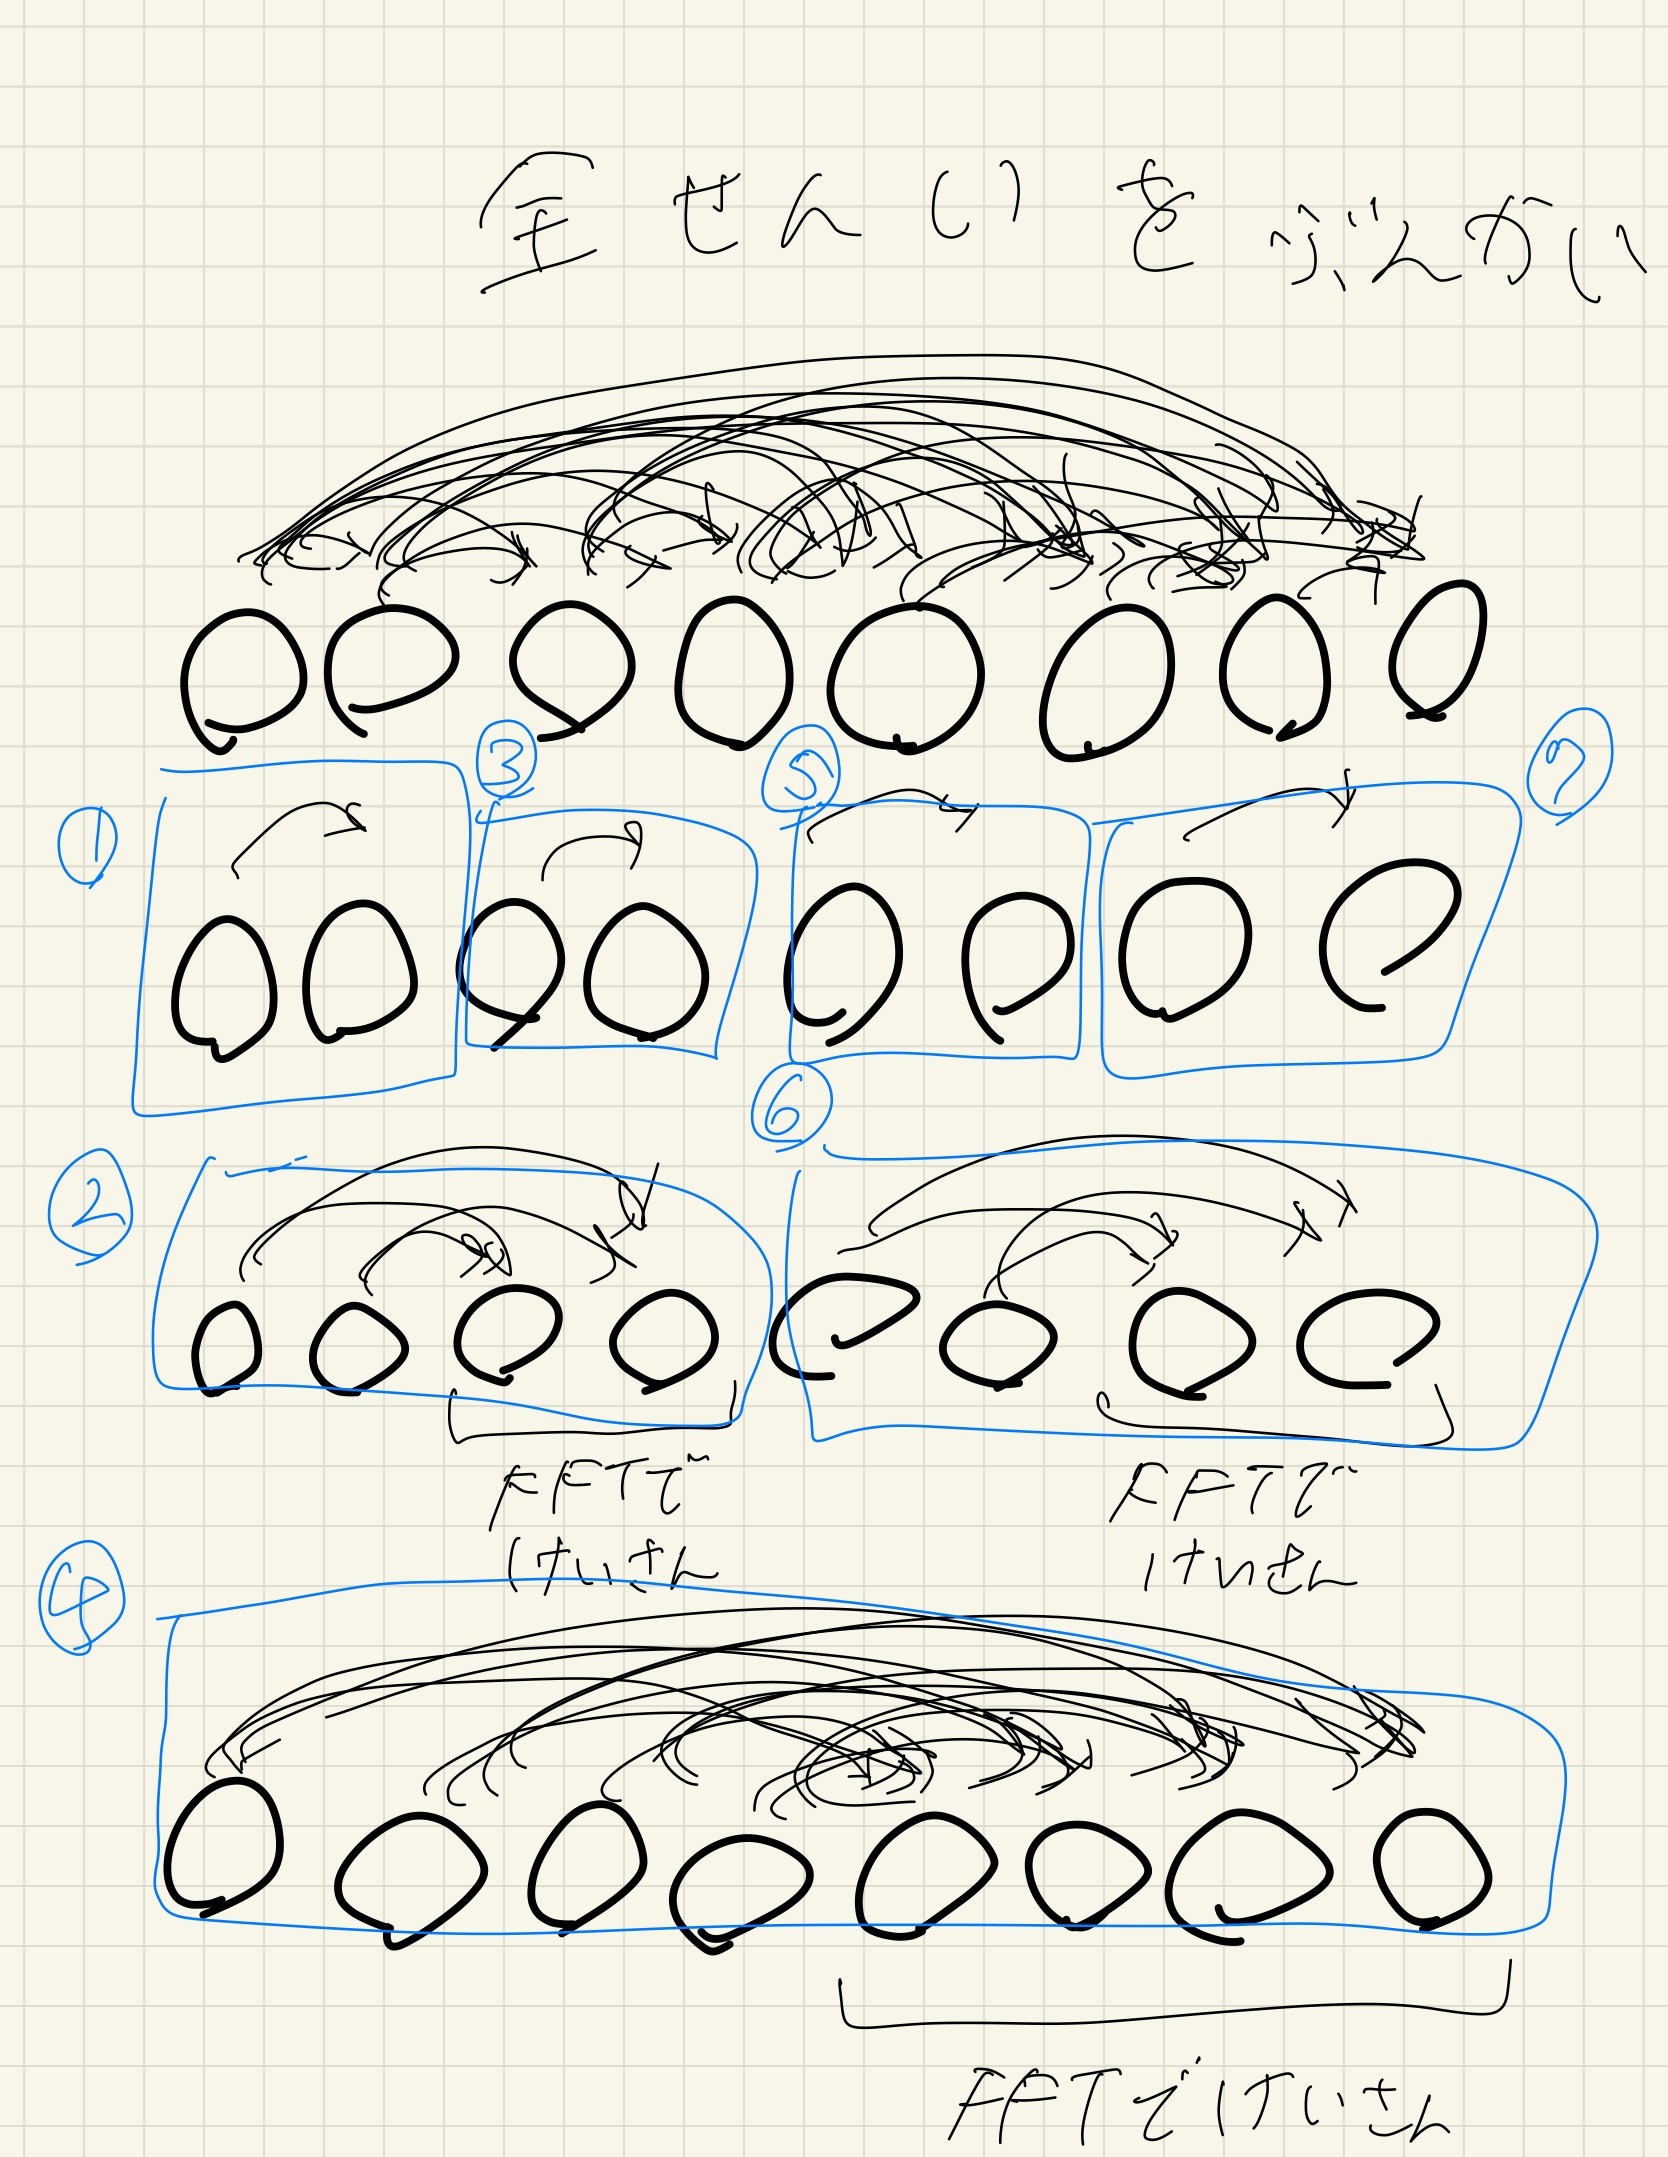 全せんいをぶんかい
③ ⑤ ⑦
①
⑥
②
FFTで FFTで
けいさん けいさん
④
FFTでけいさん